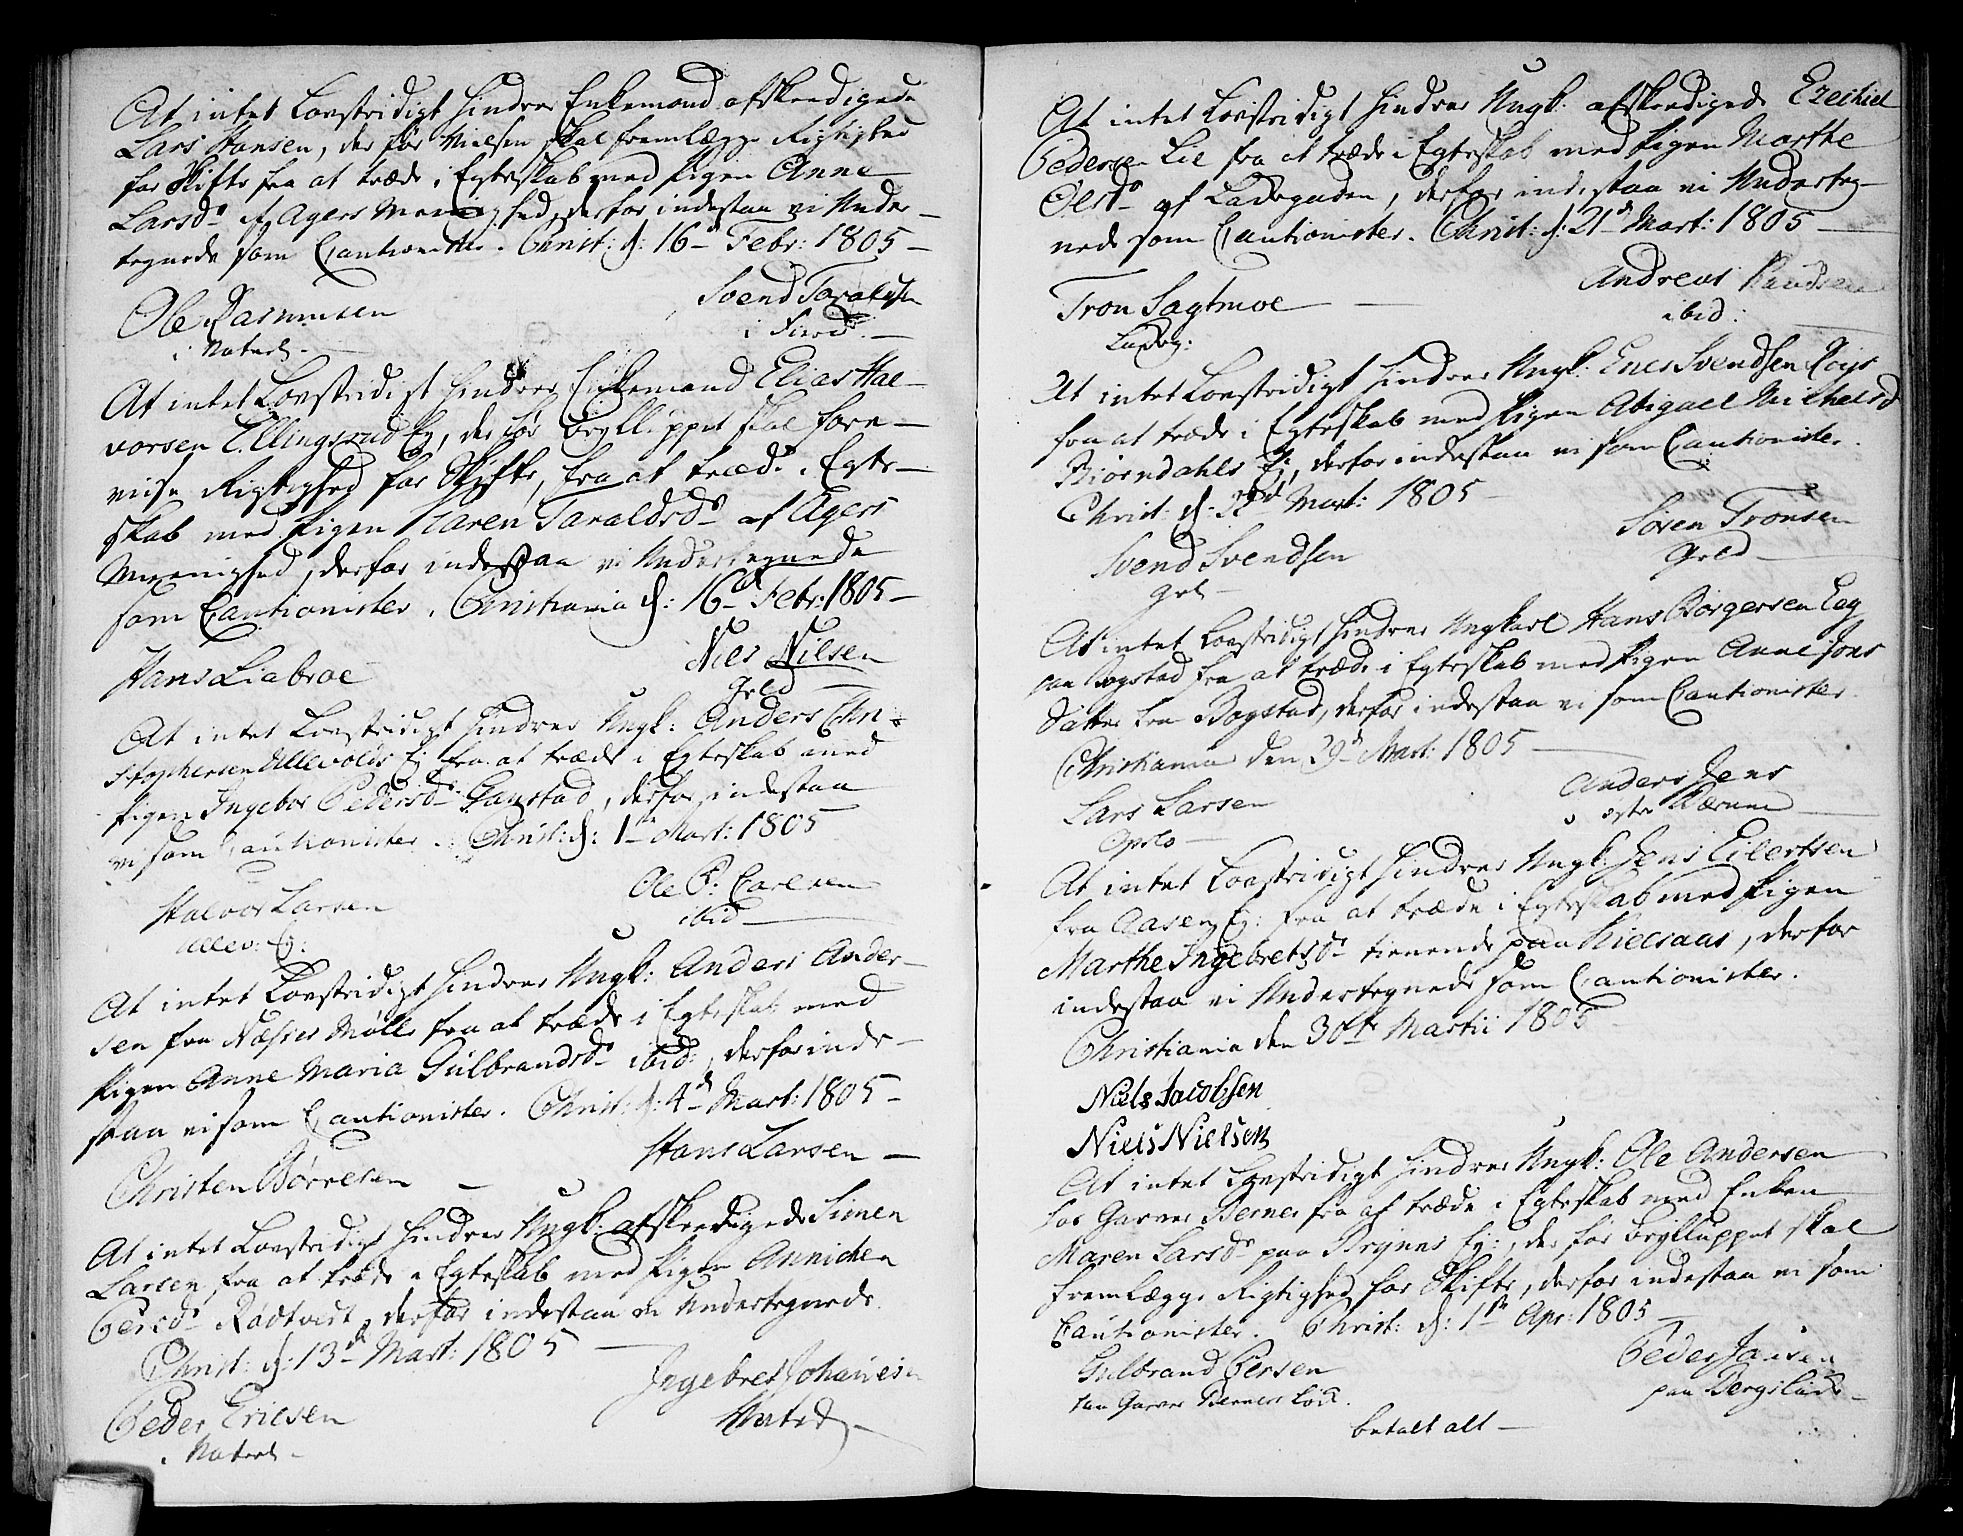 At intet Lovstridigt hindrer Enkemand afskeedigede
Lars Hansen, der før Vielsen skal fremlægge Rigtighed
for Skifte fra at træde i Egteskab med Pigen Anne
Larsd: af Agers Menighed, derfor indestaa vi Under-
tegnede som Cautionister. Christ: d: 16d Febr: 1805
Ole Rasmusen
Svend Taraldsen
At intet Lovstridigt hindrer Enkemand Elias Hal-
vorsen Ellingsrud Ej, der før Bryllüppet skal fore-
viise Rigtighed for Skifte, fra at træde i Egte-
skab med Pigen Karen Taraldsd: af Agers
Meenighed, derfor indestaa vi Undertegnede
som Cautionister. Christiania d: 16d Febr: 1805
Hans Liabroe
Niels Nilsen
At intet Lovstridigt hindrer Ungk: Anders Chri-
stophersen Ullevolds Ej fra at træde i Egteskab med
Pigen Ingebor Pedersd: Gaustad, derfor indestaa
vi som Cautionister. Christ: d: 1te Mart: 1805
Halvor Larsen
Ullev: Ej:
Ole P: Carlsen
ibid
At intet Lovstridigt hindrer Ungk: Anders Ander-
sen fra Næsses Mølle fra at træde i Egteskab med
Pigen Anne Maria Gülbrandsd: ibid:, derfor inde-
staa vi som Cautionister. Christ: d: 4d Mart: 1805
Christen Børresen
Hans Larsen
At intet Lovstridigt hindrer Ungk: afskeedigede Simen
Larsen fra at træde i Egteskab med Pigen Annichen
Persd: Rødtvedt, derfor indestaa vi Undertegnede.
Christ: d: 13d Mart: 1805
Peder Ericsen
Ingebret Johansen
At intet Lovstridigt hindrer Ungk: afskeedigede Ezechiel
Pedersen Lie fra at træde i Egteskab med Pigen Marthe
Olsd: af Ladegaden, derfor indestaa vi Underteg-
nede som Cautionister. Christ: d: 21d Mart: 1805
Tron Sagtmoe
Ladeg:
Andreas Knudsen
ibid:
At intet Lovstridigt hindrer Ungk: Svendsen
fra at træde i Egteskab med Pigen Abigael Michelsd
Biørndahls Ej, derfor indestaa vi som Cautionister.
Christ: d: Mart: 1805
Svend Svendsen
Søren Tronsen
At intet Lovstridigt hindrer Ungkarl Hans Borgersen Eeg
paa Bogstad fra at træde i Egteskab med Pigen Anne Jons
Datter fra Bogstad, derfor indestaa vi som Cautionister.
Christiania den 29d Mart: 1805
Lars Larsen
Opslo
Anders Jens
Bærum
At intet Lovstridigt hindrer Ungk: Jens Eilertsen
fra Aasen Ej: fra at træde i Egteskab med Pigen
Marthe Ingebretsd: tienende paa Kielsaas, derfor
indestaa vi Undertegnede som Cautionister.
Christiania den 30te Martii 1805
Niels Jacobsen
Niels Nielsen
At intet Lovstridigt hindrer Ungk: Ole Andersen
hos Garver Berner fra at træde i Egteskab med Enken
Maren Larsd: paa Brynns Ej:, der før Brylluppet skal
fremlægge Rigtighed for Skifte, derfor indestaa vi som
Cautionister. Christ: d: 1te Apr: 1805
Gulbrand Persen
Garver Berners Løk.
Peder Jansen
paa
betalt alt